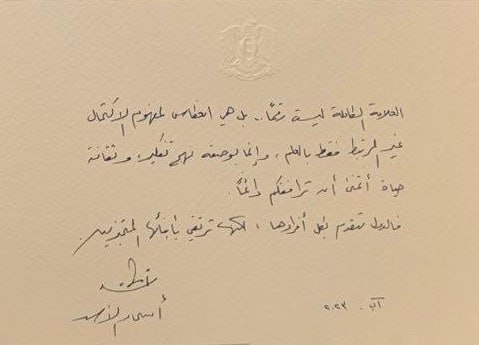 العلامة الكاملة ليست رقماً.. بل هي انعكاس لمفهوم الاكتمال
غير المرتبط فقط بالعلم، وإنما بوصفه نهج تفكير، وثقافة
حياة أتمنى أن ترافقكم دائماً.
فالدول تتقدم بكل أفرادها، لكنها ترتقي بأبنائها المتميزين.
أسماء الأسد
آب ٢٠٢٣